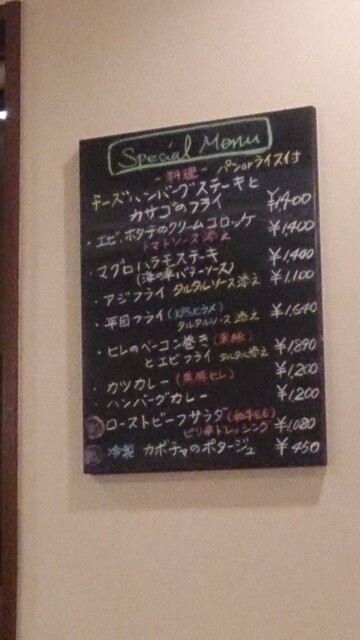 Special Menu
-料理- パンorライス付
チーズハンバーグステーキと
カサゴのフライ ¥1400
・エビ、ホタテのクリームコロッケ ¥1400
トマトソース添え
・マグロハラモステーキ ¥1400
(海の幸バターソース)
・アジフライ タルタルソース添え ¥1,100
・平目フライ(天然ヒラメ) ¥1,640
タルタルソース添え
・ヒレのベーコン巻き(黒豚) ¥1,890
とエビフライ タルタル添え
・カツカレー(黒豚ヒレ) ¥1,200
・ハンバーグカレー ¥1,200
ローストビーフサラダ(和牛モモ) ¥1,080
ピリ辛ドレッシング
冷製 カボチャのポタージュ ¥450